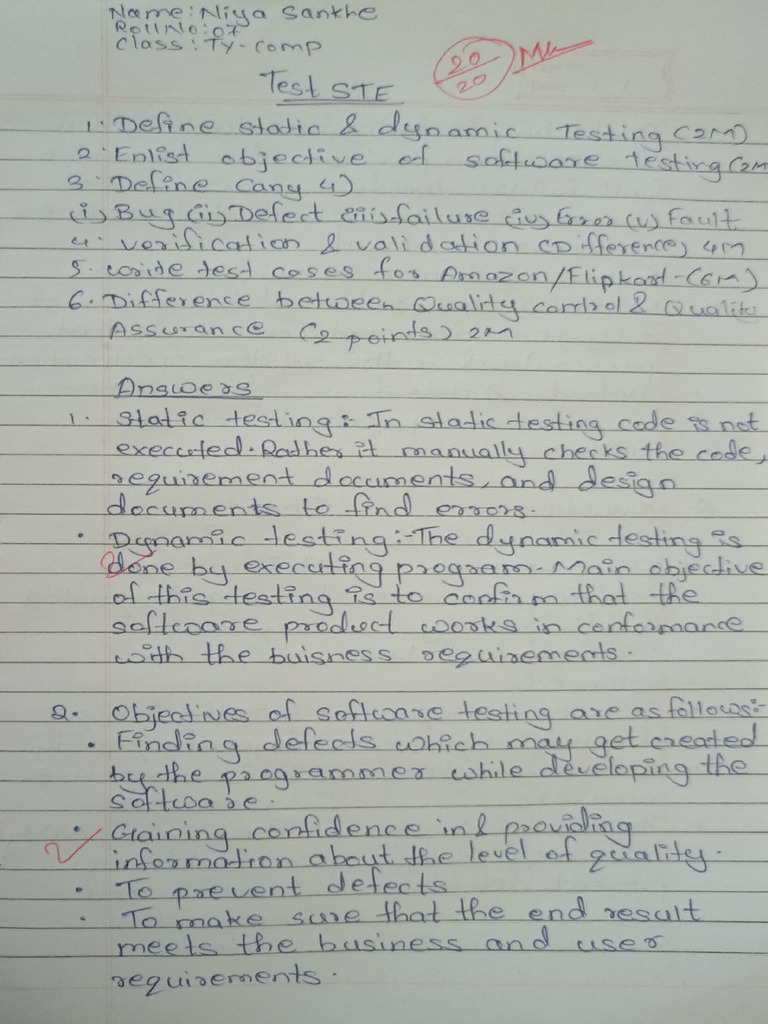 Name: Niya Sankhe
Roll No: 07
Class: TY-Comp
20/20
Test STE
1. Define static & dynamic Testing (2M)
2. Enlist objective of software testing (2M
3. Define (any 4)
(i) Bug (ii) Defect (iii) failure (iv) Error (v) Fault
4. verification & validation (Difference) 4M
5. write test cases for Amazon/Flipkart-(6M)
6. Difference between Quality control & Quality
Assurance (2 points) 2M
Answers
1. Static testing :- In static testing code is not
executed. Rather it manually checks the code,
requirement documents, and design
documents to find errors.
• Dynamic testing :- The dynamic testing is
done by executing program. Main objective
of this testing is to confirm that the
software product works in conformance
with the buisness requirements.
2. Objectives of software testing are as follows:-
• Finding defects which may get created
by the programmer while developing the
software.
• Gaining confidence in & providing
information about the level of quality.
• To prevent defects
• To make sure that the end result
meets the business and user
requirements.